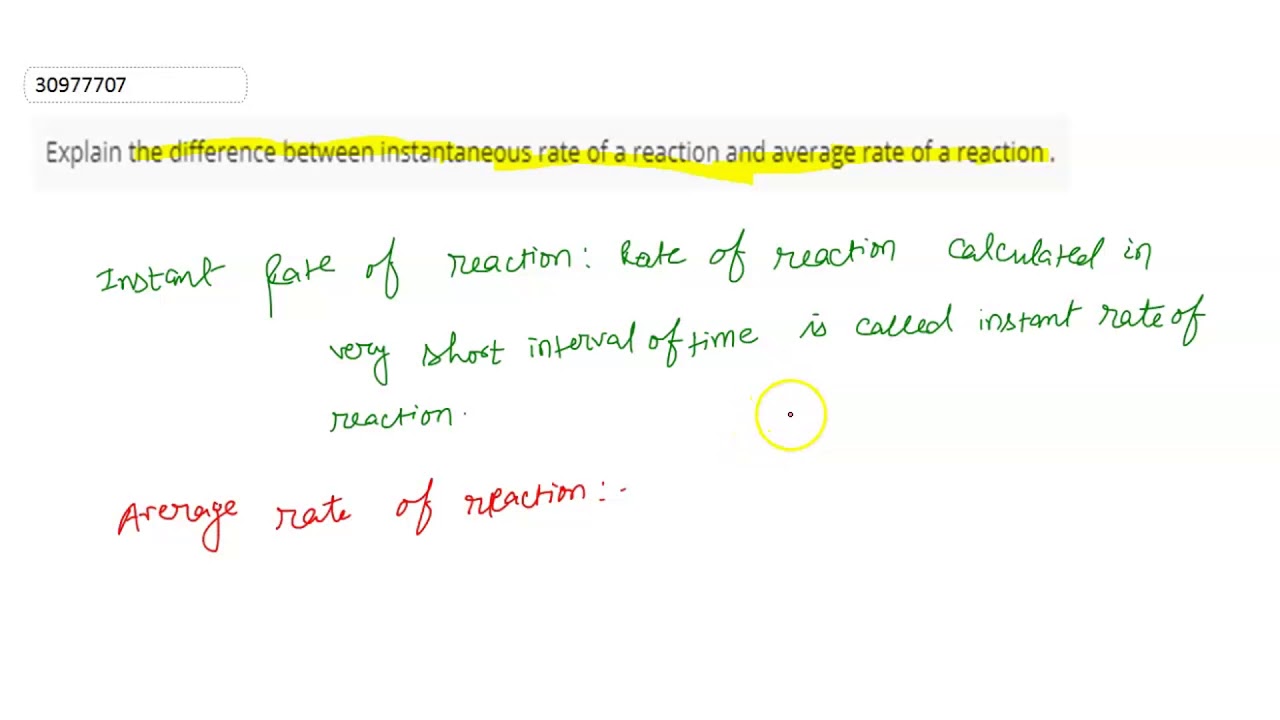 30977707
Explain the difference between instantaneous rate of a reaction and average rate of a reaction .
Instant Rate of reaction: Rate of reaction calculated in
very short interval of time is called instant rate of
reaction.
Average rate of reaction:-